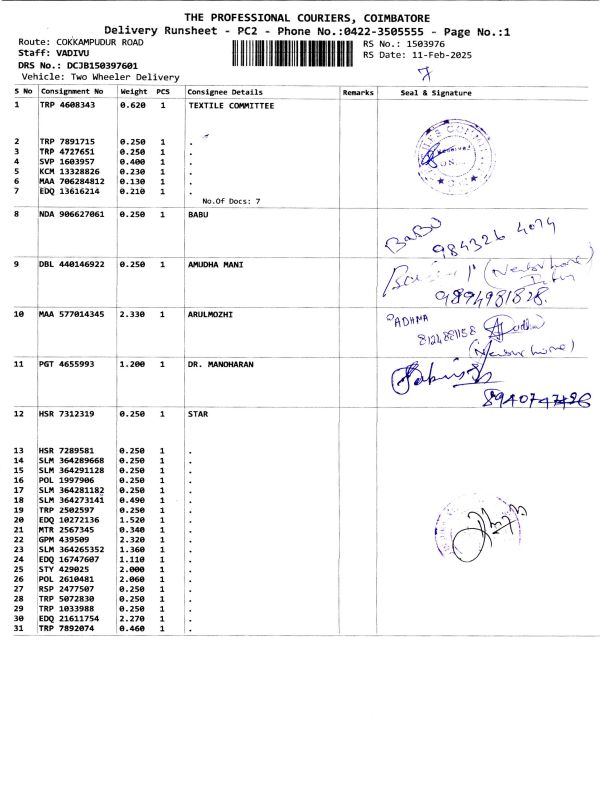 THE PROFESSIONAL COURIERS, COIMBATORE
Delivery Runsheet - PC2 - Phone No.:0422-3505555 - Page No.:1
Route: COKKAMPUDUR ROAD
RS No.: 1503976
Staff: VADIVU
RS Date: 11-Feb-2025
DRS No.: DCJB150397601
Vehicle: Two Wheeler Delivery
7
S No Consignment No Weight PCS Consignee Details Remarks Seal & Signature
1 TRP 4608343 0.620 1 TEXTILE COMMITTEE
2 TRP 7891715 0.250 1 .
3 TRP 4727651 0.250 1 .
4 SVP 1603957 0.400 1 .
5 KCM 13328826 0.230 1 .
6 MAA 706284812 0.130 1 .
7 EDQ 13616214 0.210 1 .
Received
No.Of Docs: 7
8 NDA 906627061 0.250 1 BABU
BABU
984326 4074
9 DBL 440146922 0.250 1 AMUDHA MANI
9894981828
10 MAA 577014345 2.330 1 ARULMOZHI
PADHMA
8124881158
11 PGT 4655993 1.200 1 DR. MANOHARAN
8940747486
12 HSR 7312319 0.250 1 STAR
13 HSR 7289581 0.250 1 .
14 SLM 364289668 0.250 1 .
15 SLM 364291128 0.250 1 .
16 POL 1997906 0.250 1 .
17 SLM 364281182 0.250 1 .
18 SLM 364273141 0.490 1 .
19 TRP 2502597 0.250 1 .
20 EDQ 10272136 1.520 1 .
21 MTR 2567345 0.340 1 .
22 GPM 439509 2.320 1 .
23 SLM 364265352 1.360 1 .
24 EDQ 16747607 1.110 1 .
25 STY 429025 2.000 1 .
26 POL 2610481 2.060 1 .
27 RSP 2477507 0.250 1 .
28 TRP 5072830 0.250 1 .
29 TRP 1033988 0.250 1 .
30 EDQ 21611754 2.270 1 .
31 TRP 7892074 0.460 1 .